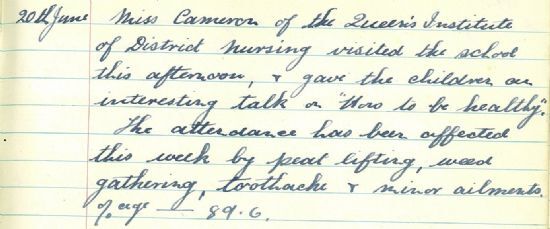 20th June Miss Cameron of the Queen's Institute
of District Nursing visited the school
this afternoon, & gave the children an
interesting talk on "How to be healthy".
The attendance has been affected
this week by peat lifting, weed
gathering, toothache & minor ailments.
% age — 89.6.